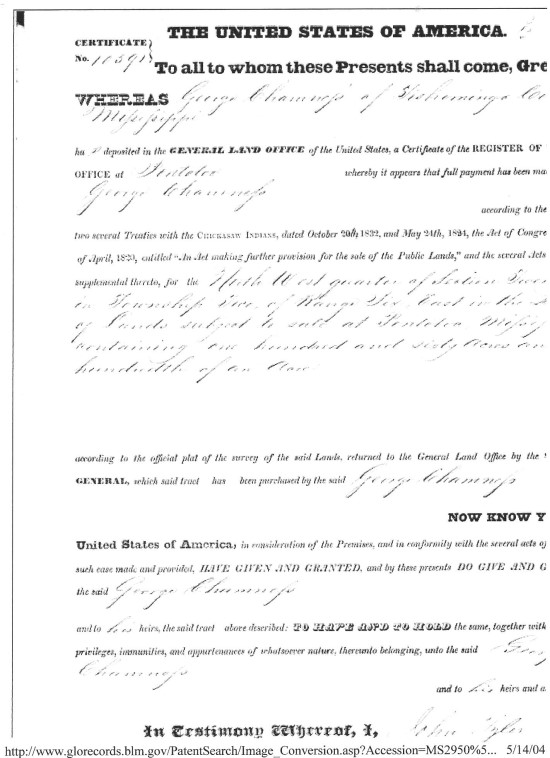 THE UNITED STATES OF AMERICA.
CERTIFICATE
No. 10591
To all to whom these Presents shall come, Gre
WHEREAS George Chamness of Tishomingo Co
Mississippi
ha s deposited in the GENERAL LAND OFFICE of the United States, a Certificate of the REGISTER OF
OFFICE at Pontotoc whereby it appears that full payment has been ma
George Chamness
according to the
two several Treaties with the CHICKASAW INDIANS, dated October 20th, 1832, and May 24th, 1834, the Act of Congre
of April, 1820, entitled "An Act making further provision for the sale of the Public Lands," and the several Acts
supplemental thereto, for the North West quarter of Section
in Township Two, of Range Six, East in the
of Lands subject to sale at Pontotoc, Missi
containing one hundred and sixty Acres an
hundredth of an Acre
according to the official plat of the survey of the said Lands, returned to the General Land Office by the
GENERAL, which said tract has been purchased by the said George Chamness
NOW KNOW Y
United States of America, in consideration of the Premises, and in conformity with the several acts of
such case made and provided, HAVE GIVEN AND GRANTED, and by these presents DO GIVE AND G
the said George Chamness
and to his heirs, the said tract above described: TO HAVE AND TO HOLD the same, together with
privileges, immunities, and appurtenances of whatsoever nature, thereunto belonging, unto the said Geor
Chamness
and to his heirs and a
In Testimony Whereof, I, John Tyler
http://www.glorecords.blm.gov/PatentSearch/Image_Conversion.asp?Accession=MS2950%5... 5/14/04